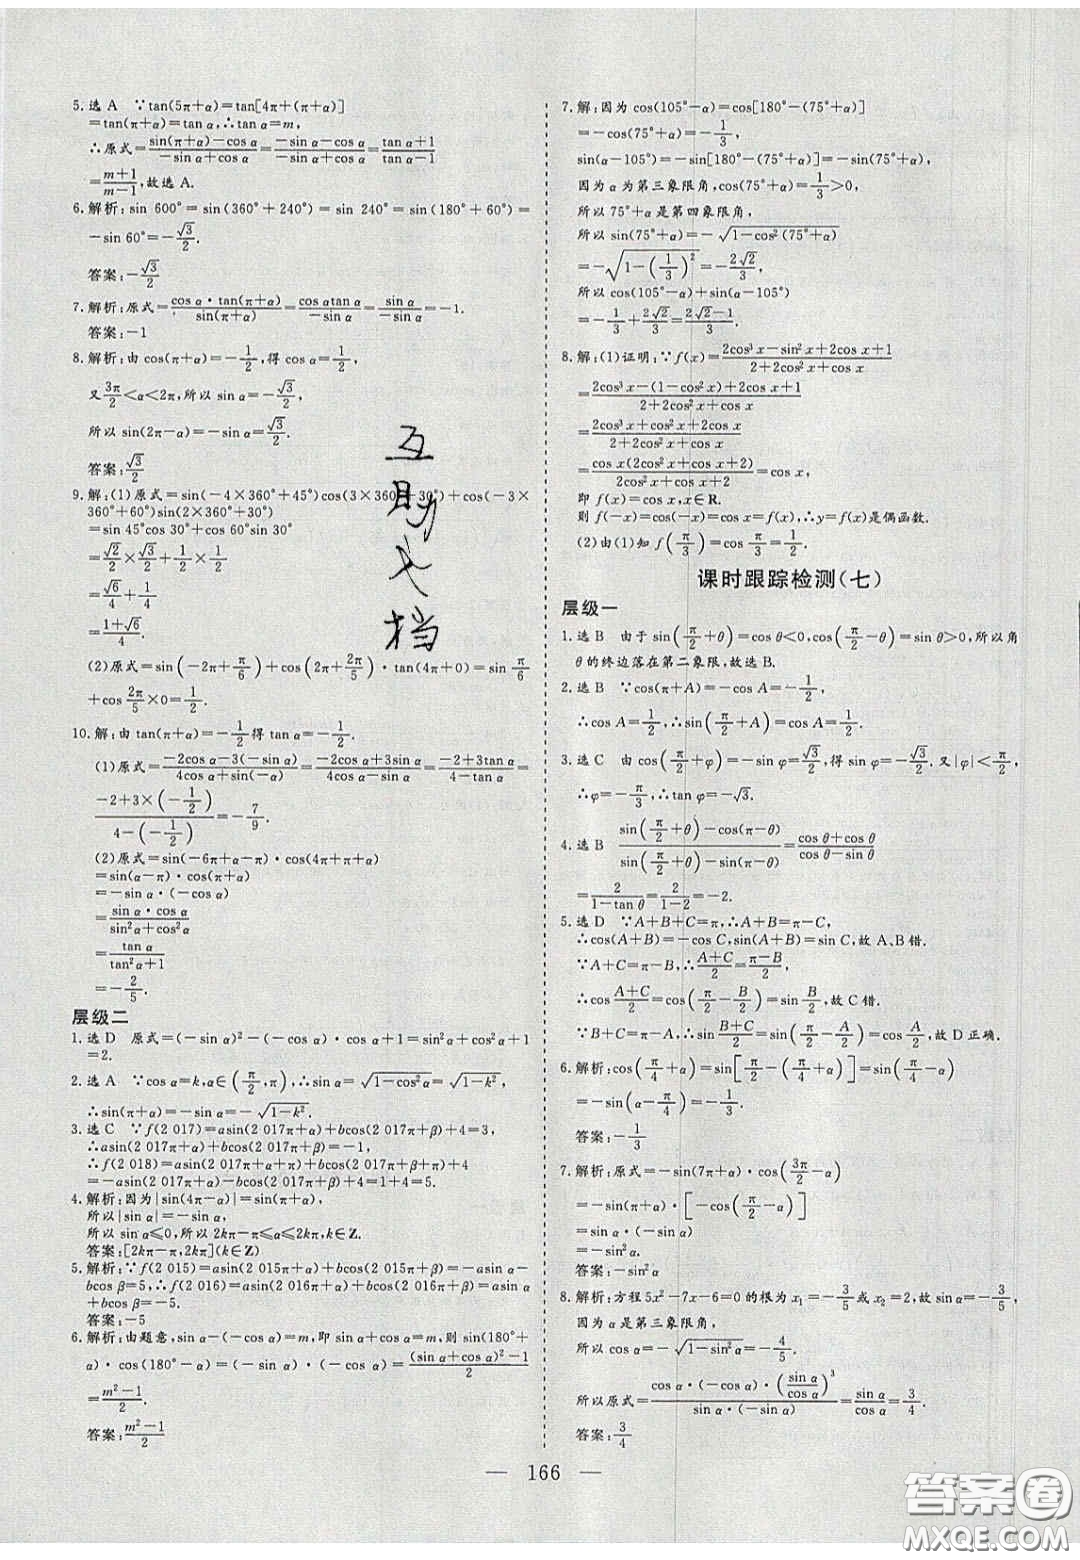 5.选A ∵tan(5π+α)=tan[4π+(π+α)]
=tan(π+α)=tan α,∴tan α=m,
∴原式=\frac{sin(π+α)-cos α}{-sin α+cos α}=\frac{-sin α-cos α}{-sin α+cos α}=\frac{tan α+1}{tan α-1}
=\frac{m+1}{m-1},故选A.
6.解析:sin 600°=sin(360°+240°)=sin 240°=sin(180°+60°)=
-sin 60°=-\frac{√3}{2}.
答案:-\frac{√3}{2}
7.解析:原式=\frac{cos α·tan(π+α)}{sin(π+α)}=\frac{cos αtan α}{-sin α}=\frac{sin α}{-sin α}=-1.
答案:-1
8.解析:由cos(π+α)=-\frac{1}{2},得cos α=\frac{1}{2},
又\frac{3π}{2}<α<2π,所以sin α=-\frac{√3}{2},
所以sin(2π-α)=-sin α=\frac{√3}{2}.
答案:\frac{√3}{2}
9.解:(1)原式=sin(-4×360°+45°)cos(3×360°+30°)+cos(-3×
360°+60°)sin(2×360°+30°)
=sin 45°cos 30°+cos 60°sin 30°
=\frac{√2}{2}×\frac{√3}{2}+\frac{1}{2}×\frac{1}{2}
=\frac{√6}{4}+\frac{1}{4}
=\frac{1+√6}{4}.
(2)原式=sin(-2π+\frac{π}{6})+cos(2π+\frac{2π}{5})·tan(4π+0)=sin\frac{π}{6}
+cos\frac{2π}{5}×0=\frac{1}{2}.
10.解:由tan(π+α)=-\frac{1}{2}得tan α=-\frac{1}{2}.
(1)原式=\frac{-2cos α-3(-sin α)}{4cos α+sin(-α)}=\frac{-2cos α+3sin α}{4cos α-sin α}=\frac{-2+3tan α}{4-tan α}=
\frac{-2+3×(-\frac{1}{2})}{4-(-\frac{1}{2})}=-\frac{7}{9}.
(2)原式=sin(-6π+α-π)·cos(4π+π+α)
=sin(α-π)·cos(π+α)
=-sin α·(-cos α)
=\frac{sin α·cos α}{sin²α+cos²α}
=\frac{tan α}{tan²α+1}
=-\frac{2}{5}.
层级二
1.选D 原式=(-sin α)²-(-cos α)·cos α+1=sin²α+cos²α+1
=2.
2.选A ∵cos α=k,α∈(\frac{π}{2},π),∴sin α=√(1-cos²α)=√(1-k²),
∴sin(π+α)=-sin α=-√(1-k²).
3.选C ∵f(2 017)=asin(2 017π+α)+bcos(2 017π+β)+4=3,
∴asin(2 017π+α)+bcos(2 017π+β)=-1,
∴f(2 018)=asin(2 017π+α+π)+bcos(2 017π+β+π)+4
=-asin(2 017π+α)-bcos(2 017π+β)+4=1+4=5.
4.解析:因为|sin(4π-α)|=sin(π+α),
所以|sin α|=-sin α,
所以sin α≤0,所以2kπ-π≤α≤2kπ,k∈Z.
答案:[2kπ-π,2kπ](k∈Z)
5.解析:∵f(2 015)=asin(2 015π+α)+bcos(2 015π+β)=-asin α-
bcos β=5,∴f(2 016)=asin(2 016π+α)+bcos(2 016π+β)=asin α
+bcos β=-5.
答案:-5
6.解析:由题意,sin α-(-cos α)=m,即sin α+cos α=m,则sin(180°+
α)·cos(180°-α)=(-sin α)·(-cos α)=\frac{(sin α+cos α)²-1}{2}
=\frac{m²-1}{2}.
答案:\frac{m²-1}{2}
7.解:因为cos(105°-α)=cos[180°-(75°+α)]
=-cos(75°+α)=-\frac{1}{3},
sin(α-105°)=-sin[180°-(75°+α)]=-sin(75°+α),
因为α为第三象限角,cos(75°+α)=\frac{1}{3}>0,
所以75°+α是第四象限角,
所以sin(75°+α)=-√(1-cos²(75°+α))
=-√(1-(\frac{1}{3})²)=-\frac{2√2}{3},
所以cos(105°-α)+sin(α-105°)
=-\frac{1}{3}+\frac{2√2}{3}=\frac{2√2-1}{3}.
8.解:(1)证明:∵f(x)=\frac{2cos³x-sin²x+2cos x+1}{2+2cos²x+cos x}
=\frac{2cos³x-(1-cos²x)+2cos x+1}{2+2cos²x+cos x}
=\frac{2cos³x+cos²x+2cos x}{2+2cos²x+cos x}
=\frac{cos x(2cos²x+cos x+2)}{2cos²x+cos x+2}=cos x,
即f(x)=cos x,x∈R.
则f(-x)=cos(-x)=cos x=f(x),∴y=f(x)是偶函数.
(2)由(1)知f(\frac{π}{3})=cos\frac{π}{3}=\frac{1}{2}.
课时跟踪检测(七)
层级一
1.选B 由于sin(\frac{π}{2}+θ)=cos θ<0,cos(\frac{π}{2}-θ)=sin θ>0,所以角
θ的终边落在第二象限,故选B.
2.选B ∵cos(π+A)=-cos A=-\frac{1}{2},
∴cos A=\frac{1}{2},∴sin(\frac{π}{2}+A)=cos A=\frac{1}{2}.
3.选C 由cos(\frac{π}{2}+φ)=-sin φ=\frac{√3}{2},得sin φ=-\frac{√3}{2}.又|φ|<\frac{π}{2},
∴φ=-\frac{π}{3},∴tan φ=-√3.
4.选B \frac{sin(\frac{π}{2}+θ)-cos(π-θ)}{sin(\frac{π}{2}+θ)-sin(π-θ)}=\frac{cos θ+cos θ}{cos θ-sin θ}
=\frac{2}{1-tan θ}=\frac{2}{1-2}=-2.
5.选D ∵A+B+C=π,∴A+B=π-C,
∴cos(A+B)=-cos C,sin(A+B)=sin C,故A、B错.
∵A+C=π-B,∴\frac{A+C}{2}=\frac{π-B}{2},
∴cos\frac{A+C}{2}=cos(\frac{π}{2}-\frac{B}{2})=sin\frac{B}{2},故C错.
∵B+C=π-A,∴sin\frac{B+C}{2}=sin(\frac{π}{2}-\frac{A}{2})=cos\frac{A}{2},故D正确.
6.解析:cos(\frac{π}{4}+α)=sin[\frac{π}{2}-(\frac{π}{4}+α)]=sin(\frac{π}{4}-α)
=-sin(α-\frac{π}{4})=-\frac{1}{3}.
答案:-\frac{1}{3}
7.解析:原式=-sin(7π+α)·cos(\frac{3π}{2}-α)
=-sin(π+α)·[-cos(\frac{π}{2}-α)]
=sin α·(-sin α)
=-sin²α.
答案:-sin²α
8.解析:方程5x²-7x-6=0的根为x₁=-\frac{3}{5}或x₂=2,故sin α=-\frac{3}{5},
因为α是第三象限角,
所以cos α=-√(1-sin²α)=-\frac{4}{5}.
所以原式=\frac{cos α·(-cos α)·(\frac{sin α}{cos α})³}{sin α·(-sin α)}=\frac{sin α}{cos α}=\frac{3}{4}.
答案:\frac{3}{4}
互助文档
— 166 —
答案圈
MXQE.COM